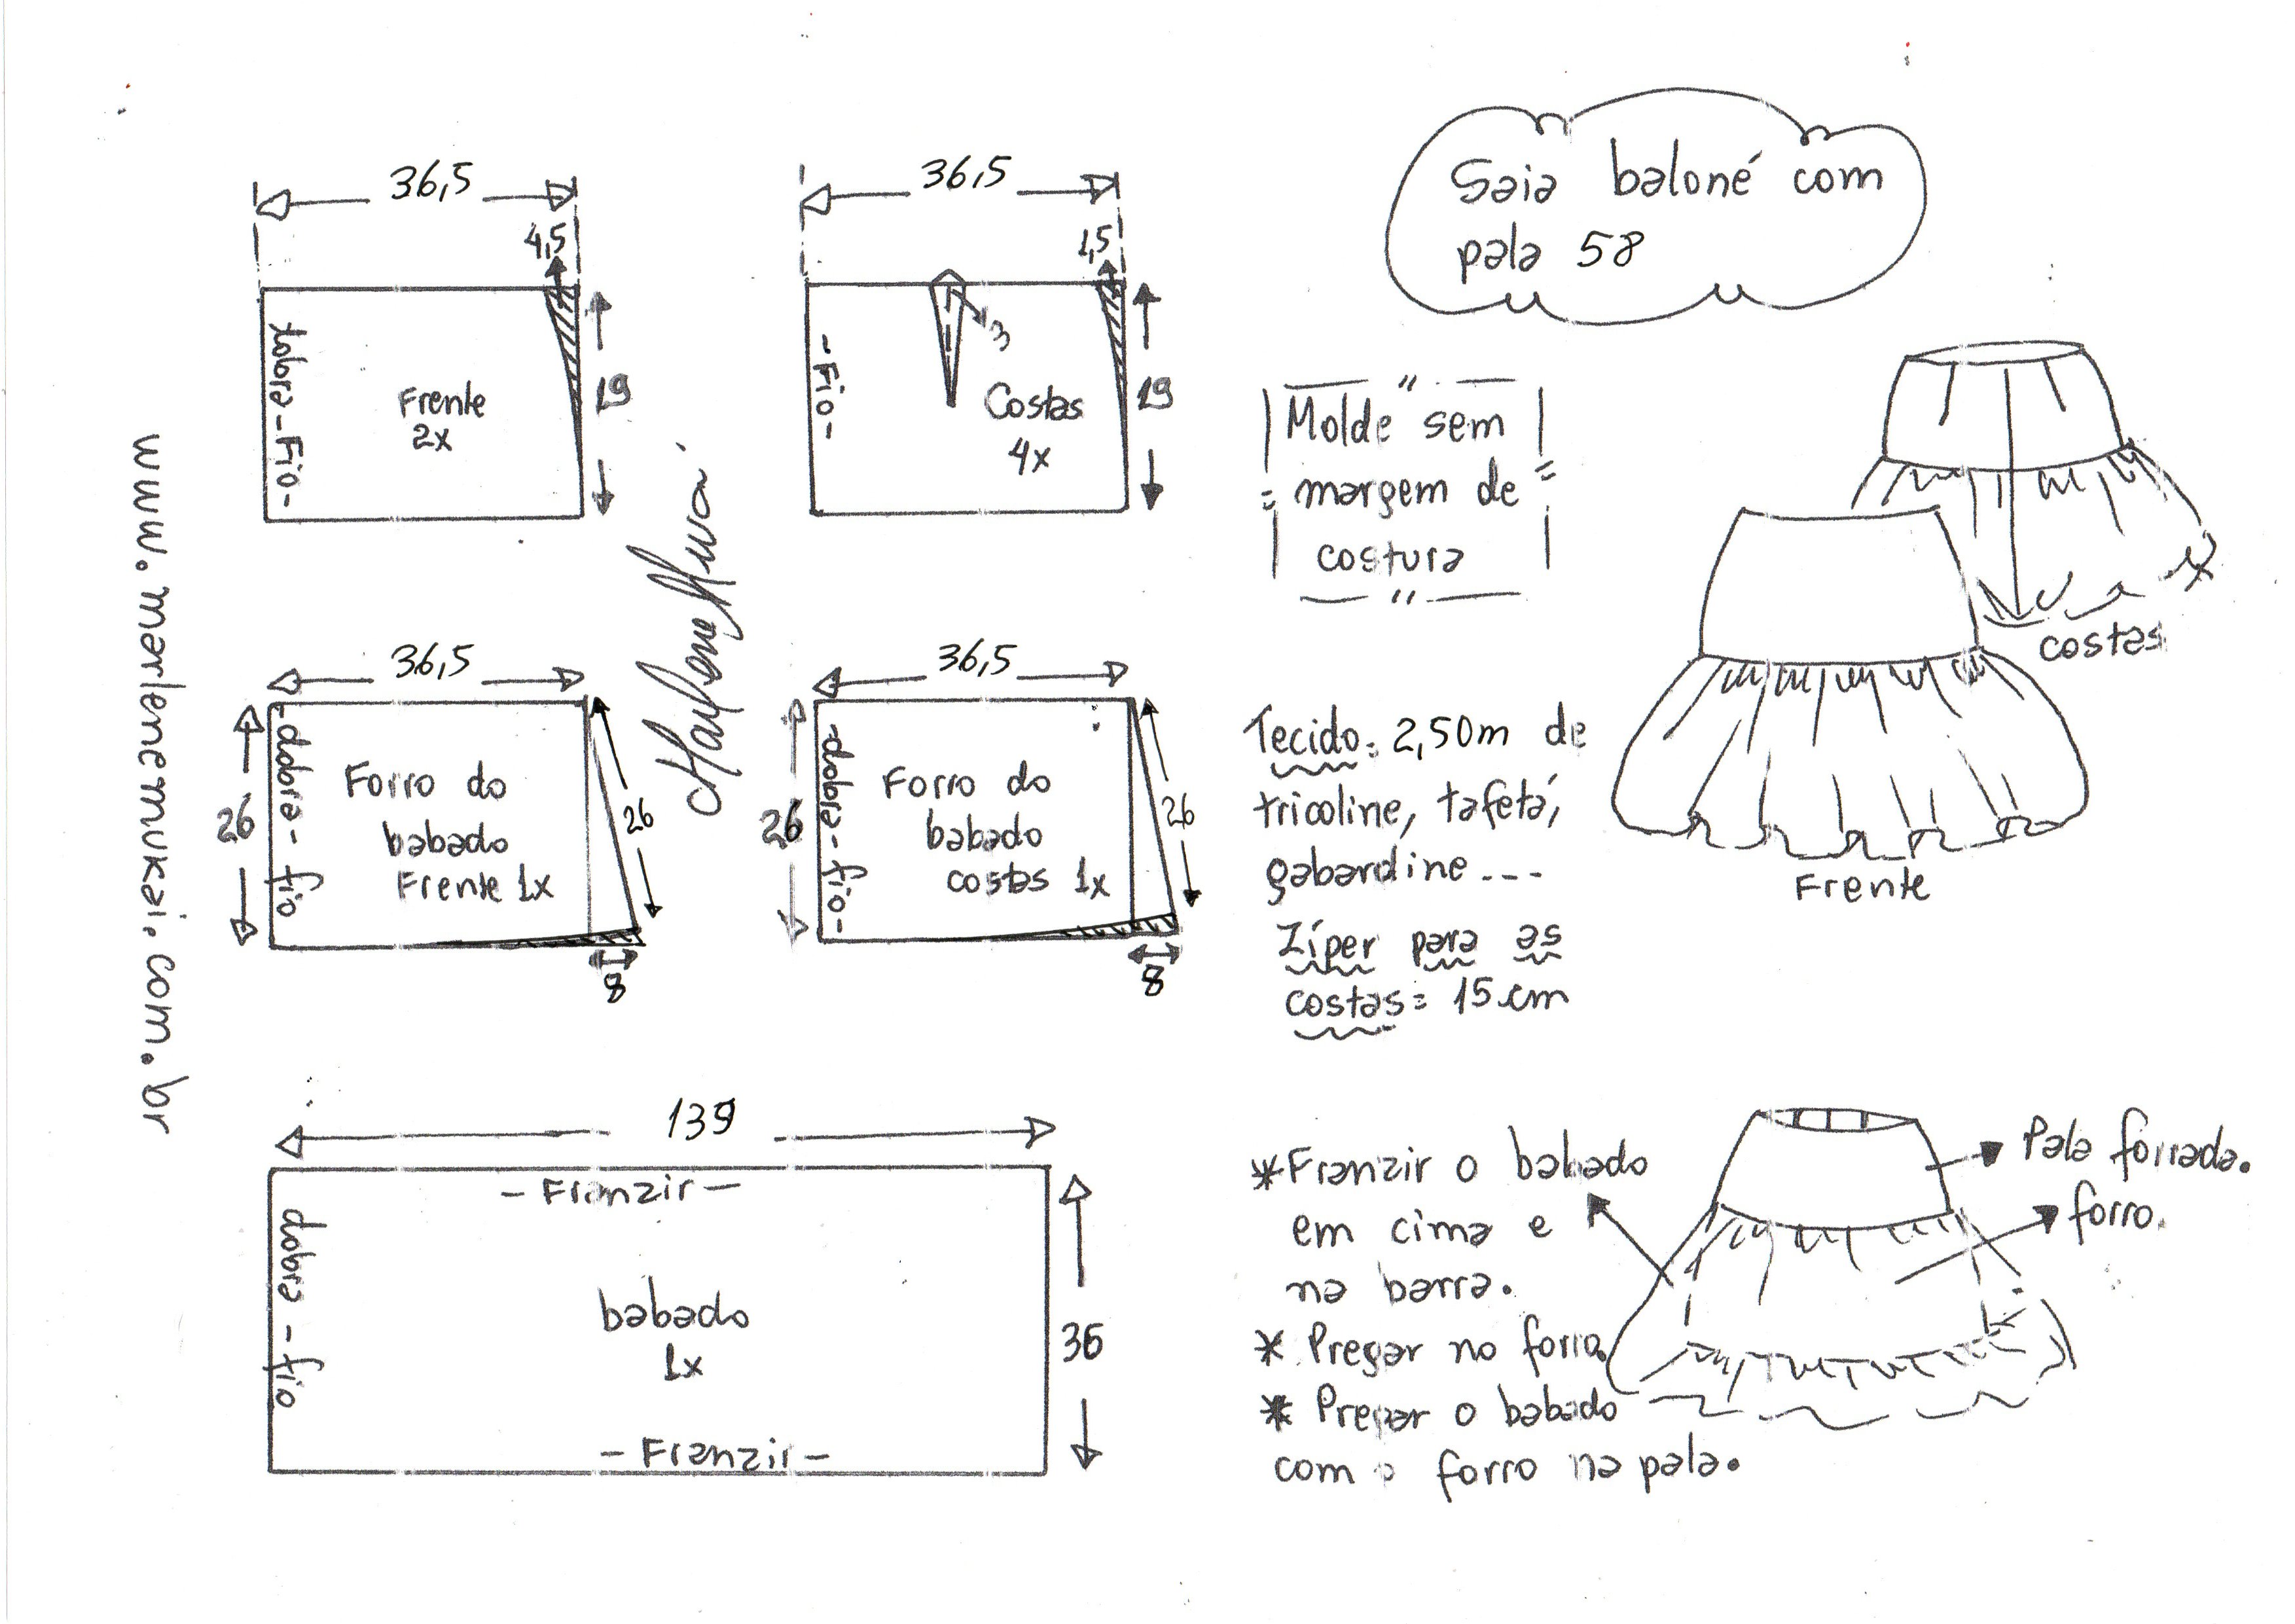 Saia baloné com
pala 58
36,5
4,5
dobra - Fio -
Frente
2x
19
36,5
1,5
3
- Fio -
Costas
4x
19
Molde sem
margem de
costura
costas
Frente
www.marlenemukai.com.br
36,5
26
- dobra - fio
Forro do
babado
Frente 1x
26
8
36,5
26
- dobra - fio -
Forro do
babado
costas 1x
26
8
Tecido: 2,50m de
tricoline, tafetá,
gabardine ---
Zíper para as
costas = 15 cm
139
- Franzir -
dobra - fio
babado
1x
36
- Franzir -
* Franzir o babado
em cima e
na barra.
* Pregar no forro.
* Pregar o babado
com o forro na pala.
Pala forrada.
forro.